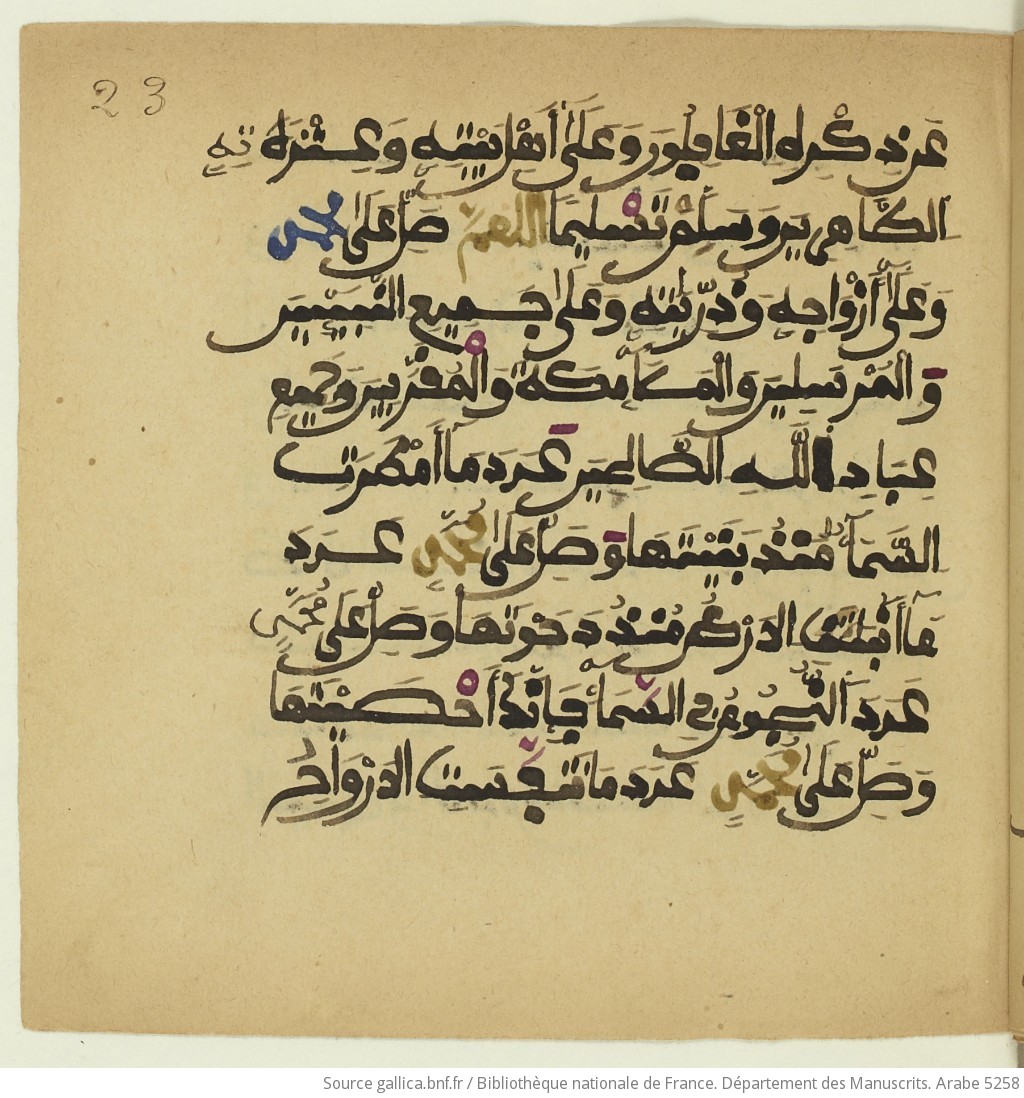 23
عَن ذِكْرِهِ الْغَافِلُونَ وَعَلَىٰ أَهْلِ بَيْتِهِ وَعِتْرَتِهِ
الطَّاهِرِينَ وَسَلِّمْ تَسْلِيمًا اللهم صَلِّ عَلَىٰ محمد
وَعَلَىٰ أَزْوَاجِهِ وَذُرِّيَّتِهِ وَعَلَىٰ جَمِيعِ النَّبِيِّينَ
وَالْمُرْسَلِينَ وَالْمَلَائِكَةِ وَالْمُقَرَّبِينَ وَجَمِيعِ
عِبَادِ اللَّهِ الصَّالِحِينَ عَدَدَ مَا أَمْطَرَتِ
السَّمَاءُ مُنْذُ بَنَيْتَهَا وَصَلِّ عَلَىٰ مُحَمَّدٍ عَدَدَ
مَا أَنْبَتَتِ الْأَرْضُ مُنْذُ دَحَوْتَهَا وَصَلِّ عَلَىٰ مُحَمَّدٍ
عَدَدَ النُّجُومِ فِي السَّمَاءِ فَإِنَّكَ أَحْصَيْتَهَا
وَصَلِّ عَلَىٰ مُحَمَّدٍ عَدَدَ مَا تَنَفَّسَتِ الْأَرْوَاحُ
Source gallica.bnf.fr / Bibliothèque nationale de France. Département des Manuscrits. Arabe 5258